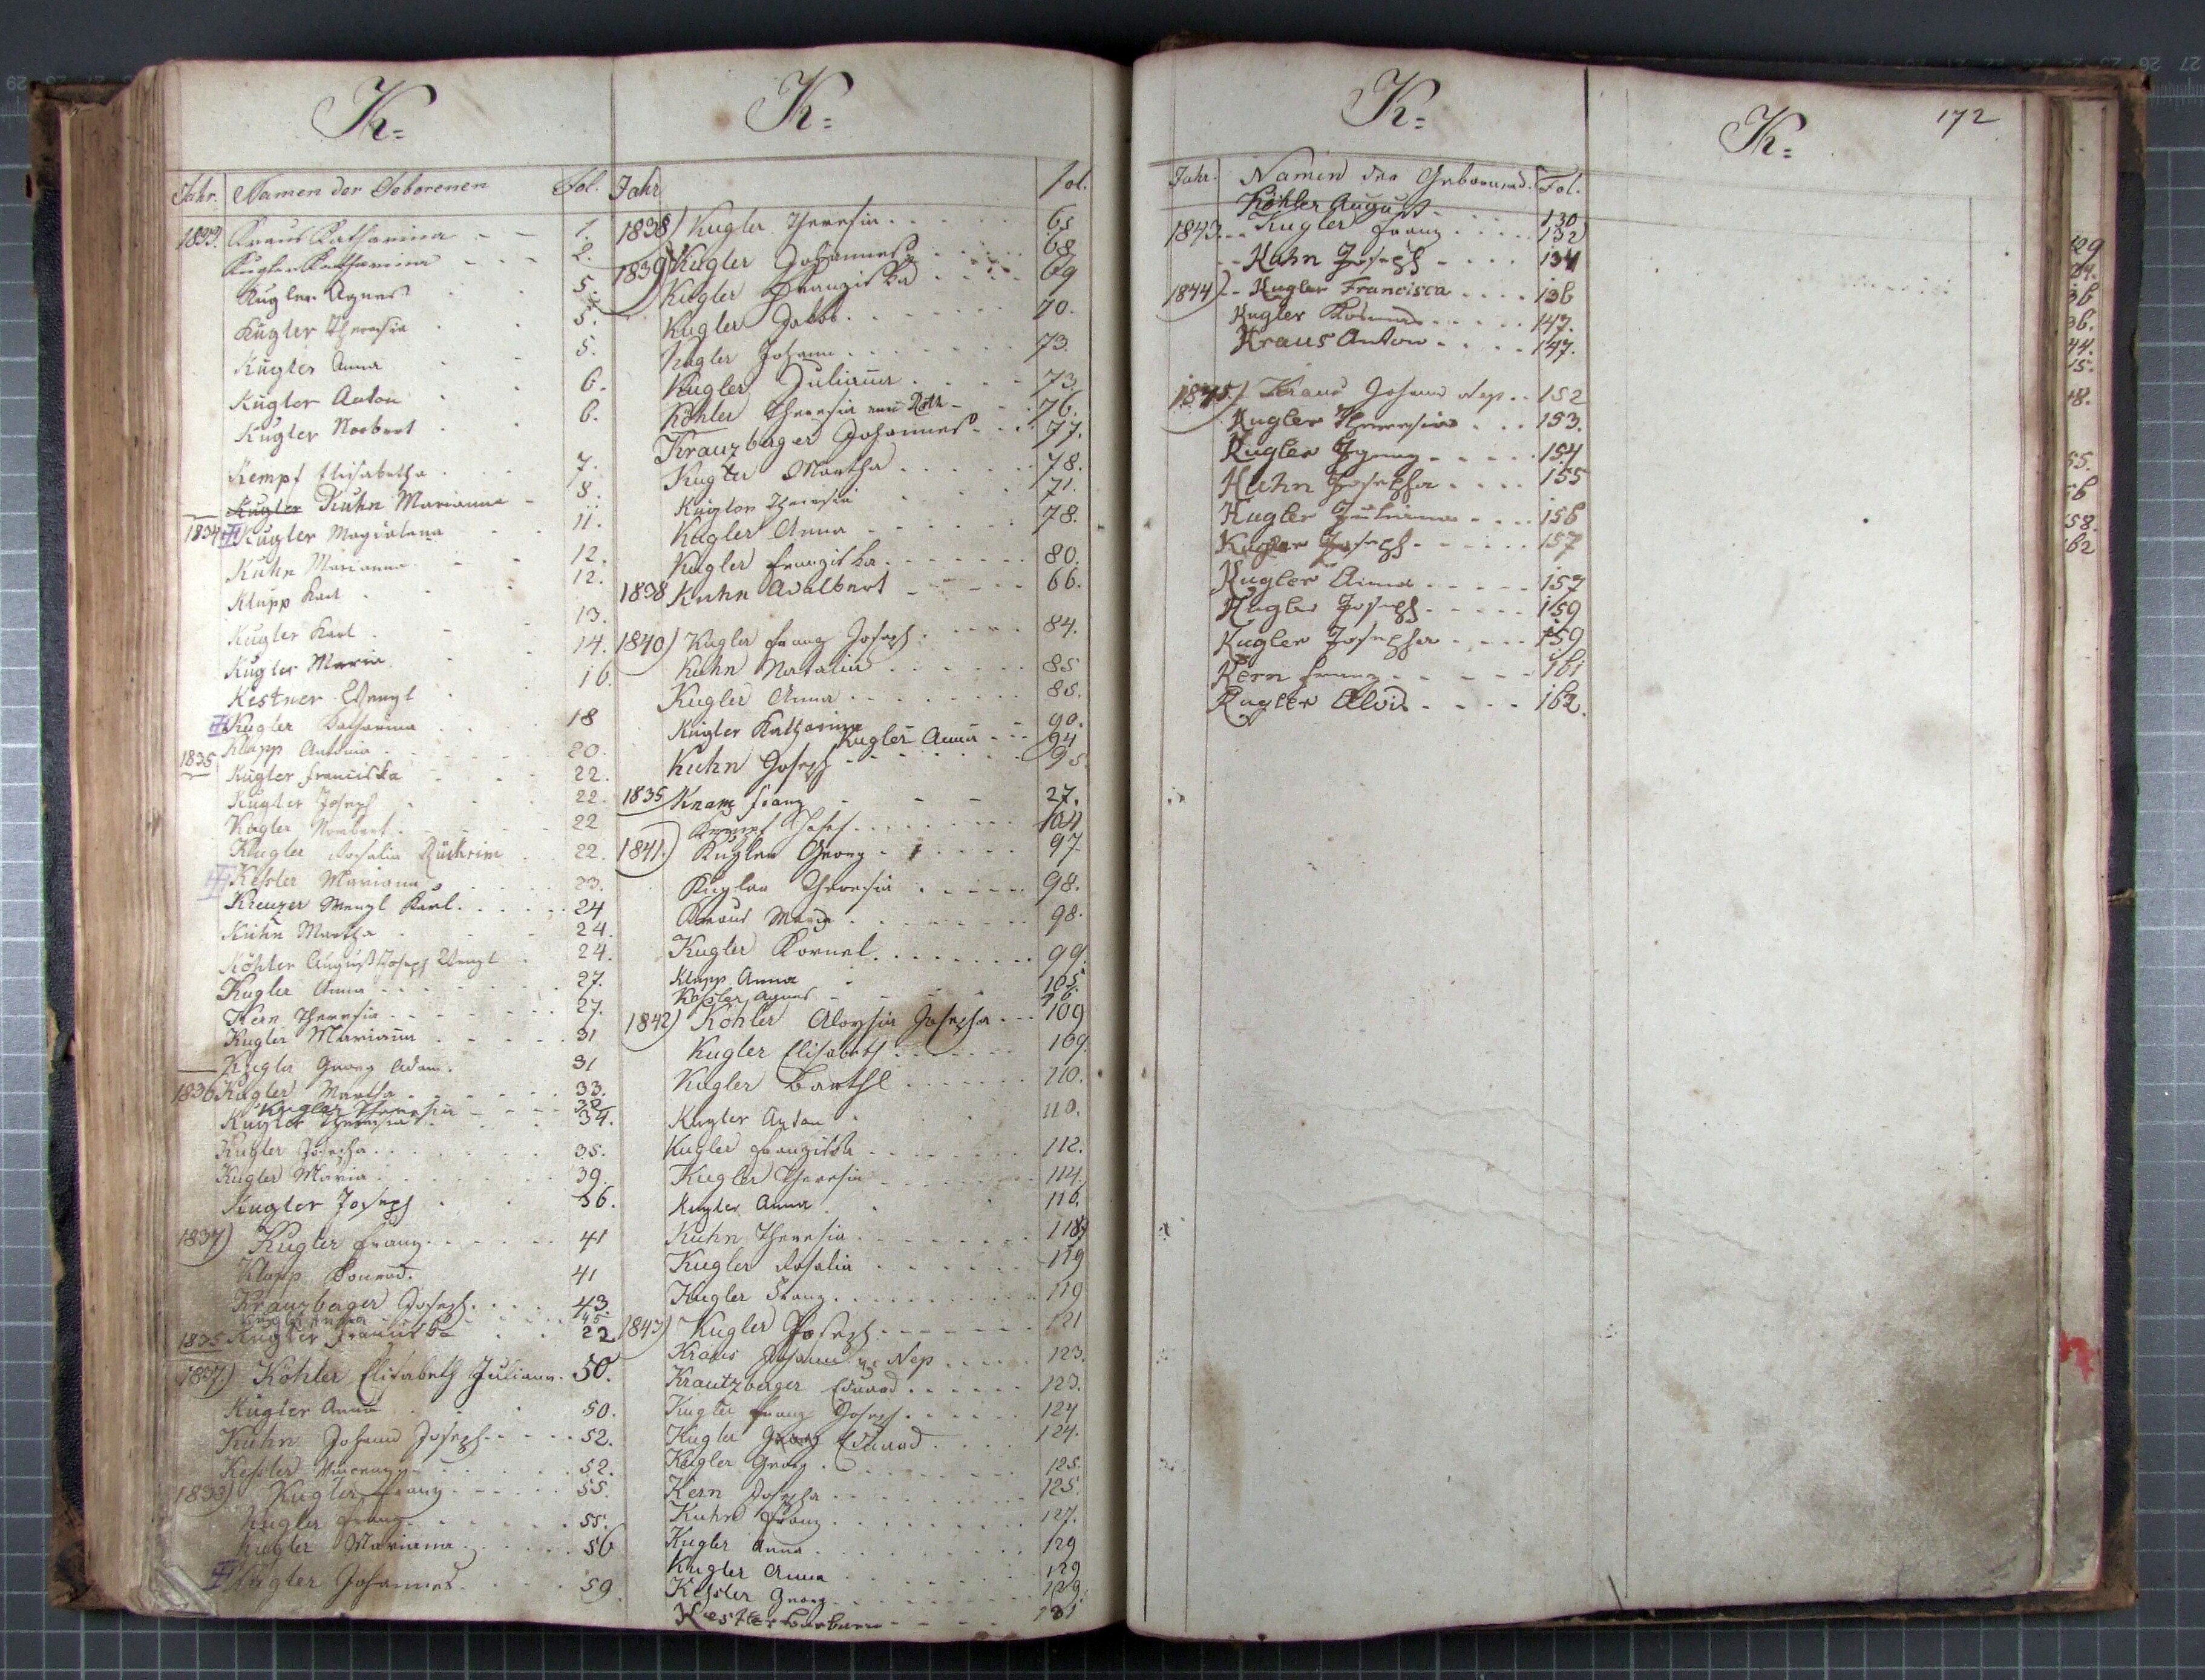 K=
Jahr. Namen der Geborenen Fol.
1833. Kraus Katharina - - 1.
Kugler Katharina - - - 2.
Kugler Agnes 5.
Kugler Theresia 5.
Kugler Anna 5.
Kugler Anton 6.
Kugler Norbert 6.
Kempf Elisabetha 7.
Kugler Kuhn Marianna - 8.
1834 Kugler Magdalena 11.
Kuhn Marianna 12.
Klupp Karl 12.
Kugler Karl 13.
Kugler Maria 14.
Kestner Wenzl 16.
Kugler Katharina 18
Klupp Antonia 20.
1835 Kugler Franciska 22.
Kugler Joseph 22.
Kugler Norbert 22
Kugler Rosalia 22.
Keßler Mariana 23.
Kreuzer Wenzl Karl 24
Kuhn Martha 24.
Köhler August Joseph Wenzl 24.
Kugler Anna 27.
Kern Theresia 27.
Kugler Marianna 31
Kugler Georg Adam. 31
1836 Kugler Martha 33.
Kugler Theresia
Kugler Theresia 34.
Kugler Josepha 35.
Kugler Maria 39.
Kugler Joseph 36.
1837) Kugler Franz 41
Klupp Konrad. 41
Kranzberger Joseph 43.
Kugler Anna 45
1835 Kugler Franciska 22
1837.) Köhler Elisabeth Juliana. 50.
Kugler Anna 50.
Kuhn Johann Joseph 52.
Keßler Vincenz 52.
1838) Kugler Franz 55.
Kugler Franz 55.
Kugler Marianna 56
Kugler Johannes 59.
K=
Jahr Fol.
1838) Kugler Theresia 65
1839) Kugler Johannes 68
Kugler Franziska 69
Kugler Jakob 70.
Kugler Johann 73.
Kugler Juliana 73.
Köhler Theresia 76.
Kranzberger Johannes 77.
Kugler Martha 78.
Kugler Theresia 71.
Kugler Anna 78.
Kugler Franziska 80.
1838 Kuhn Adalbert 66.
1840) Kugler Franz Joseph 84.
Kuhn Natalia 85
Kugler Anna 85.
Kugler Katharina 90.
Kugler Anna 94
Kuhn Joseph 95.
1835 Knam Franz 27.
Josef 104
1841.) Kugler Georg 97
Kugler Theresia 98.
Kraus Maria 98.
Kugler Kornel 99.
Klupp Anna 105.
Keßler Agnes
1842) Köhler Aloysia Josepha 109
Kugler Elisabeth 109.
Kugler Barthl 110.
Kugler Anton 110.
Kugler Franziska 112.
Kugler Theresia 114.
Kugler Anna 116.
Kuhn Theresia 118
Kugler Rosalia 119
Kugler Franz 119
1843) Kugler Joseph 121
Kraus Johann v. Nep 123.
Krautzberger Eduard 123.
Kugler Franz Joseph 124
Kugler Georg Eduard 124.
Kugler Georg 125.
Kern Josepha 125.
Kuhn Franz 127.
Kugler Anna 129
Kugler Anna 129
Keßler Georg 129.
Kestler Barbara 131
K=
Jahr. Namen der Gebornend. Fol.
Köhler August 130
1843. Kugler Franz 132
Kuhn Joseph 134
1844) Kugler Francisca 136
Kugler Kosmas 147.
Kraus Anton 147.
1845.) Kraus Johann Nep. 152
Kugler Theresia 153.
Kugler Ignaz 154
Kuhn Josepha 155
Kugler Juliana 156
Kugler Joseph 157
Kugler Anna 157
Kugler Joseph 159
Kugler Josepha 159
Kern Franz 161
Kugler Alois 162.
K=
172